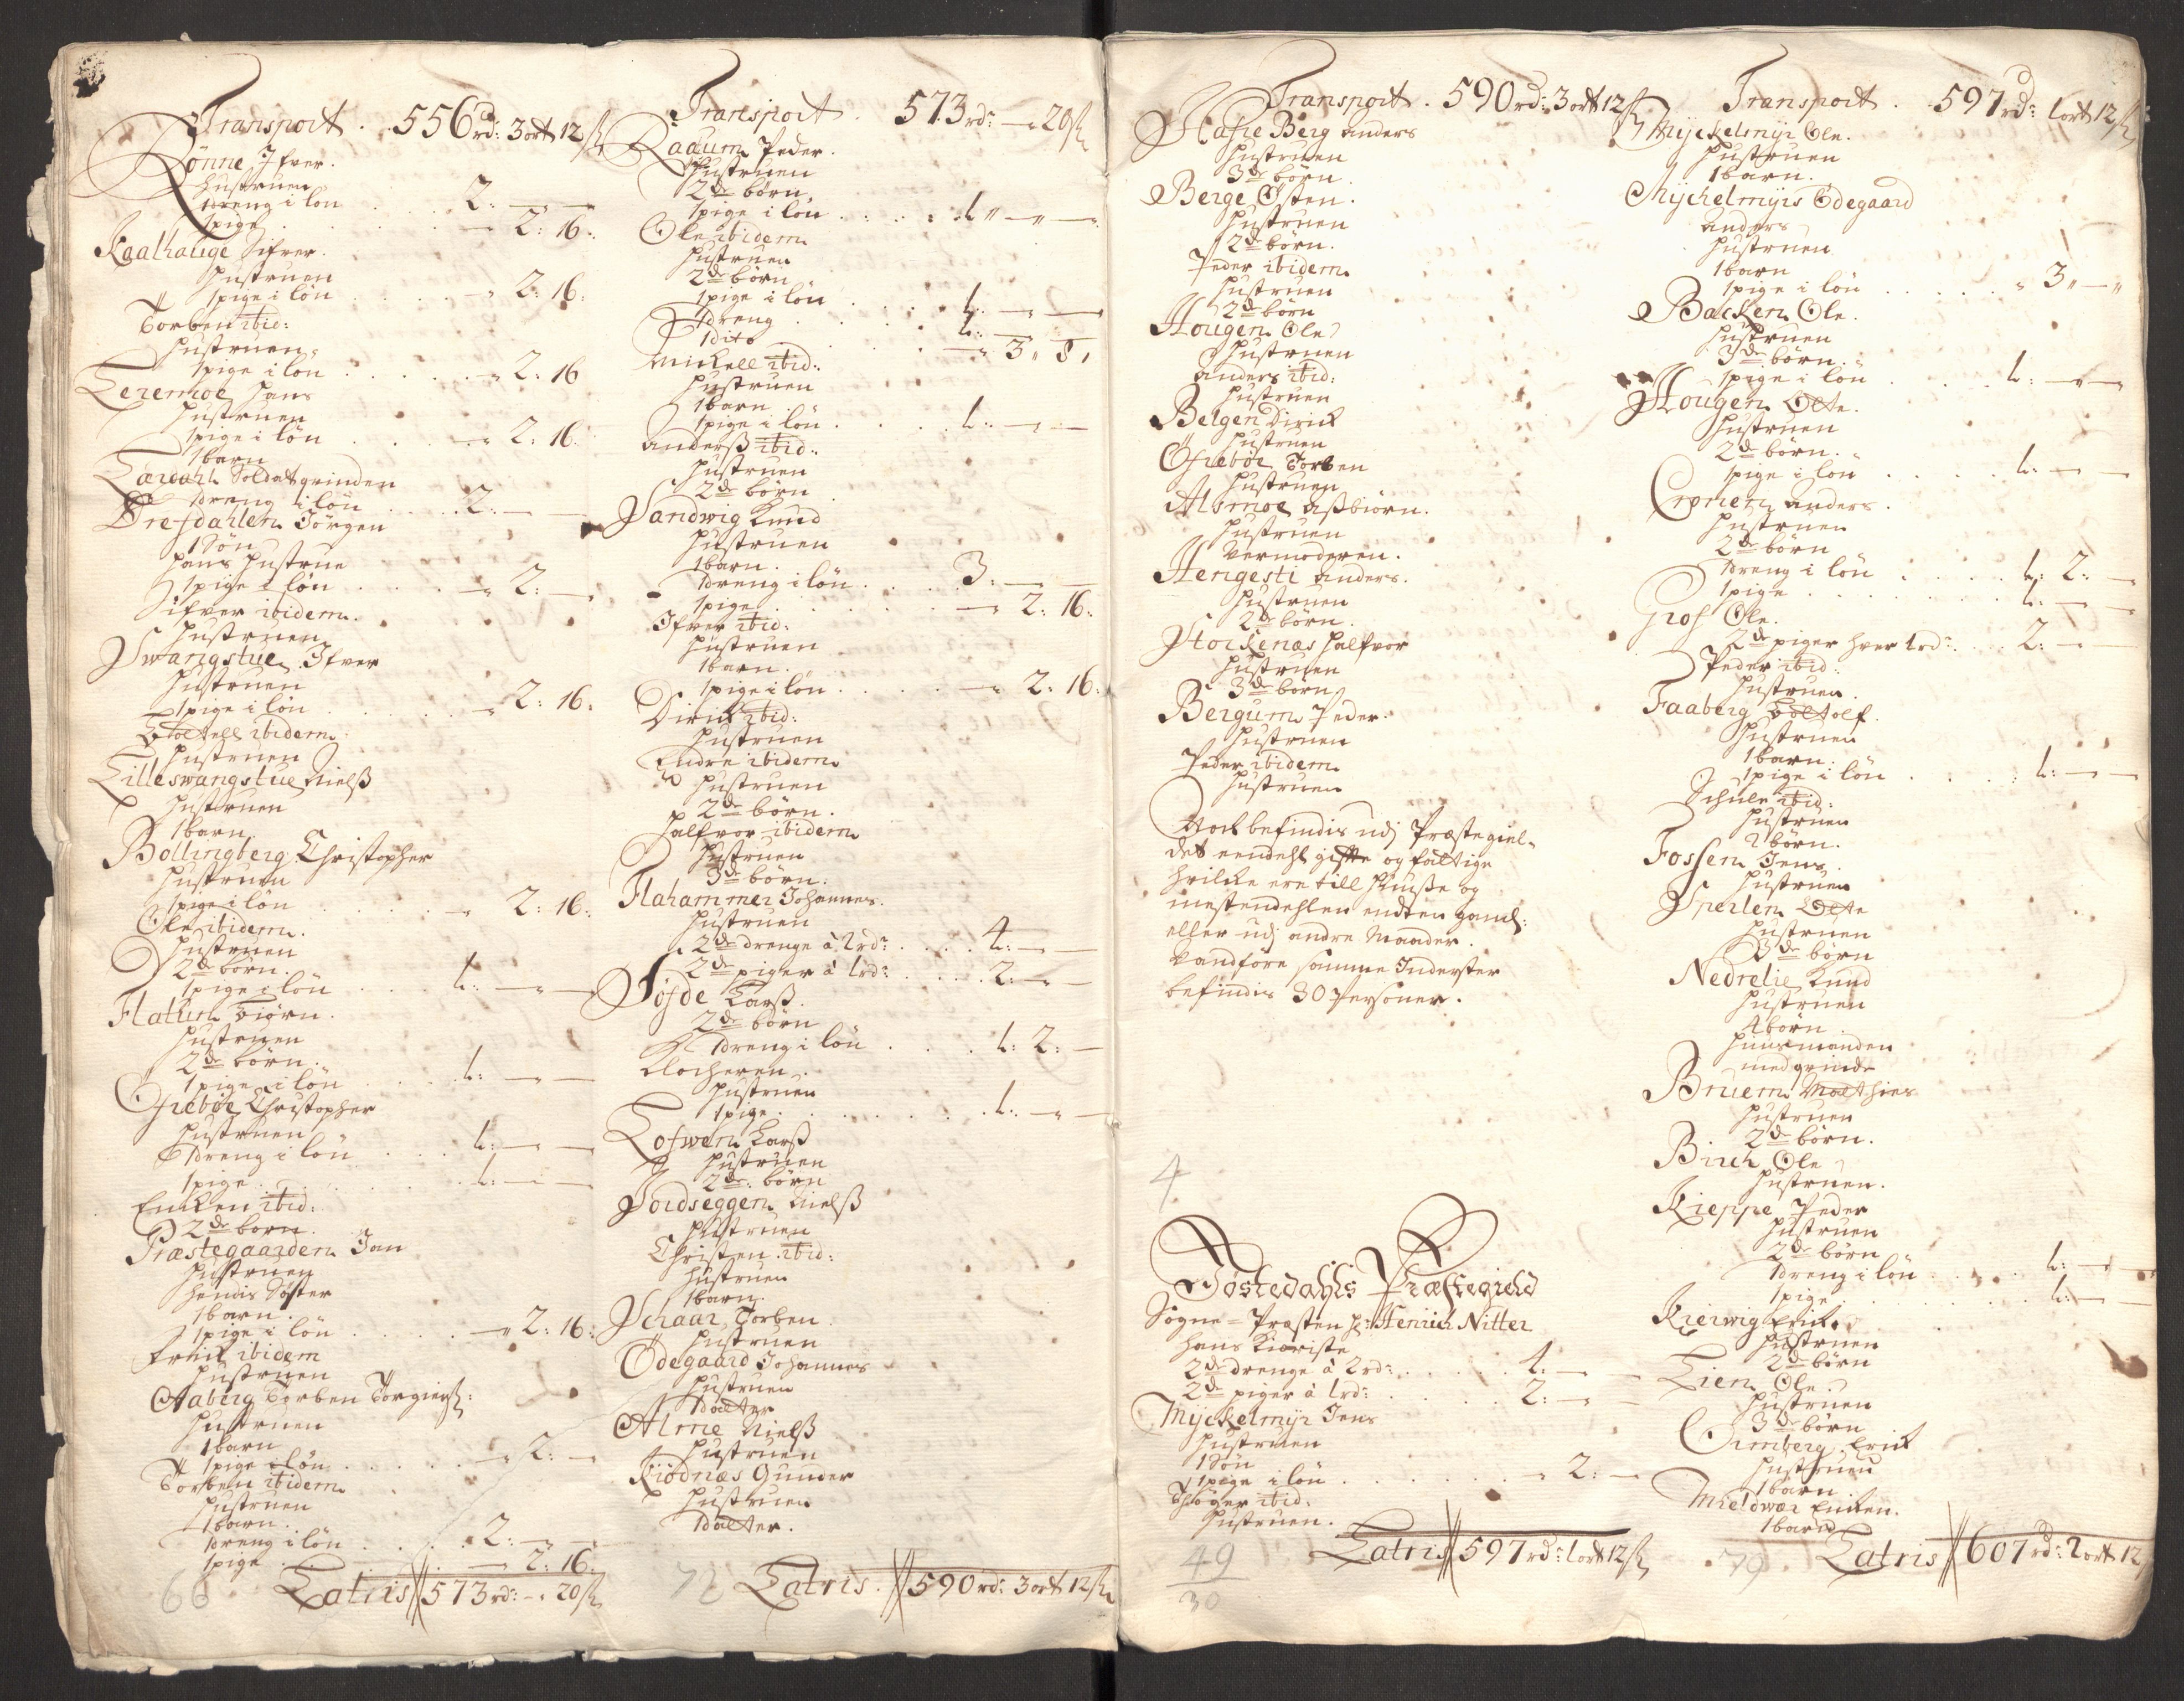 Transport . 556 rd: 3 ort 12 ß
Rønne Ifver.
Hustruen
1 dreng i lön . . . 2: — —
1 pige . . . — 2: 16:
Kaalhauge Sifver.
Hustruen
1 pige i lön . . . — 2: 16:
Torben ibid:
Hustruen.
1 pige i lön . . . — 2: 16
Leremoe Hans
Hustruen
1 pige i lön . . . — 2: 16:
1 barn
Lærdahl Soldatqvinden
1 dreng i lön . . . 2: — —
Drefdahlen Jörgen
1 Sön
Hans Hustrue
1 pige i lön . . . — 2: —
Sifver ibidem.
Hustruen
Svangstue Ifver
Hustruen
1 pige i lön . . . — 2: 16:
ibidem
Hustruen
Lilleswangstue Nielß
Hustruen
1 barn
Bollingberg Christopher
Hustruen
1 pige i lön . . . — 2: 16:
Ole ibidem.
Hustruen
2de börn.
1 pige i lön . . . 1: — —
Flathus Biörn.
Hustruen
2de börn.
1 pige i lön . . . 1: — —
Ofrebøe Christopher
Hustruen
1 dreng i lön . . . 1: — —
1 pige . . . 1: — —
Enken ibid:
2de börn.
Præstegaarden Jon
Hustruen
Hendis Söster
1 barn.
1 pige i lön . . . — 2: 16:
Erick ibidem
Hustruen
Aaberg Torben Torgierß:
Hustruen
1 barn
1 pige i lön . . . — 2: —
Torben ibidem
Hustruen
1 barn.
1 dreng i lön . . . 2: — —
1 pige . . . — 2: 16:
66 Latris 573 rd: — 20 ß
Transport . 573 rd: — 20 ß
Raaum Peder.
Hustruen
2de börn.
1 pige i lön . . . 1 — —
Ole ibidem
Hustruen
2de börn
1 pige i lön . . . 1: — —
1 dreng . . . 1: — —
1 dito . . . — 3 8
Mickell ibid:
Hustruen
1 barn
1 pige i lön . . . 1: — —
Anderß ibid:
Hustruen
2de börn
Sandvig Knud
Hustruen
1 barn.
1 dreng i lön . . . 3: — —
1 pige . . . — 2: 16:
Ifver ibid:
Hustruen
1 barn.
1 pige i lön . . . — 2: 16:
Dirick ibid:
Hustruen
Endre ibidem
Hustruen
2de börn.
Halfvor ibidem
Hustruen
3de börn:
Flahammer Johannes.
Hustruen
2de drenge à 2 rd: . . . 4: — —
2de piger à 1 rd: . . . 2: — —
Søfde Larß.
2de börn
1 dreng i lön . . . 1: 2: —
Klocheren.
Hustruen
1 pige . . . 1: — —
Lofwen Larß
Hustruen
2de börn
Jordseggen Nielß
Hustruen
Christen ibid:
Hustruen
1 barn.
Schaar Torben
Hustruen
Ødegaard Johannes
Hustruen
1 datter
Alme Nielß
Hustruen
Kiødnæs Gunder
Hustruen
1 datter.
72 Latris . 590 rd: 3 ort 12 ß
Transport . 590 rd: 3 ort 12 ß
Hafre Berg Anders
Hustruen
3de börn.
Berge Østen.
Hustruen
2de börn.
Peder ibidem
Hustruen
2de börn
Hougen Ole
Hustruen
Anders ibid:
Hustruen
Belgen Dirick
Hustruen
Ofrebøe Torben
Hustruen
Alsmoe Aßbiörn.
Hustruen
Vermoderen.
Hengesti Anders.
Hustruen
2de börn.
Stockenæs Halfvor
Hustruen
3de börn
Bergum Peder.
Hustruen
Peder ibidem
Hustruen
Noch befindis udj Præstegiel-
det eendehl gifte og fattige
hvilke ere till Huuße og
mestendehlen endten gaml:
eller udj andre Maader.
Vandföre samme Inderster
befindis 30 Personer.
4
Jøstedahls Præstegield
Sogne-Præsten Hr: Henrich Nitter
Hans Kieriste
2de drenge à 2 rd: . . . 4: — —
2de piger à 1 rd: . . . 2: — —
Myckelmyr Jens
Hustruen
1 Sön
1 pige i lön . . . — 2: —
Thöger ibid:
Hustruen.
49 Latris 597 rd: 1 ort 12 ß
30
Transport . 597 rd: 1 ort 12 ß
Myckelmyr Ole.
Hustruen
1 barn.
Myckelmyrs Ödegaard
Anders
Hustruen
1 barn
1 pige i lön . . . 3 —
Backen Ole.
Hustruen
3de börn.
1 pige i lön . . . 1: — —
Hougen Otte.
Hustruen
2de börn.
1 pige i lön . . . 1: — —
Cronen Anders.
Hustruen
2de börn
1 dreng i lön . . . 1: 2: —
1 pige . . . 1: — —
Grof Ole.
2de piger hver 1 rd: . . 2: — —
Peder ibid:
Hustruen.
Faaberg
Hustruen
1 barn:
1 pige i lön . . . 1: — —
Schule ibid:
Hustruen
2 börn.
Fossen Jens
Hustruen
Sperlen Otte
Hustruen
3de börn
Nedrelie Knud
Hustruen
4 börn
Huusmanden
med qvinde
Bruem Matthies
Hustruen
2de börn.
Birch Ole
Hustruen.
Kieppe Peder
Hustruen
2de börn
1 dreng i lön . . . 1: — —
1 pige . . . 1: — —
Kiervig Erick.
Hustruen
2de börn
Lien Ole.
Hustruen
3de börn
Ormberg Erick
Hustruen
1 barn
Mieldvær Enken.
1 barn
79 Latris 607 rd: 2 ort 12